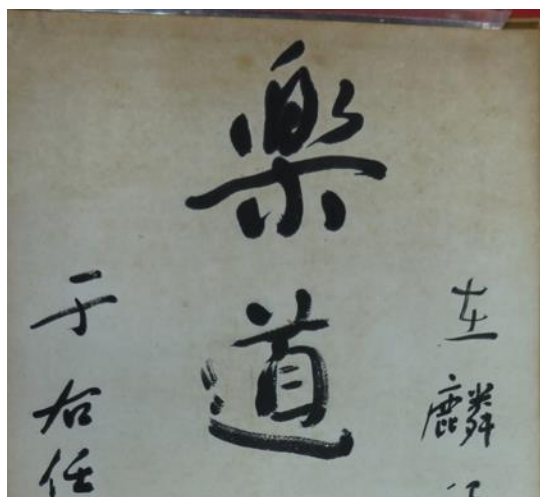 在麟
樂道
于右任